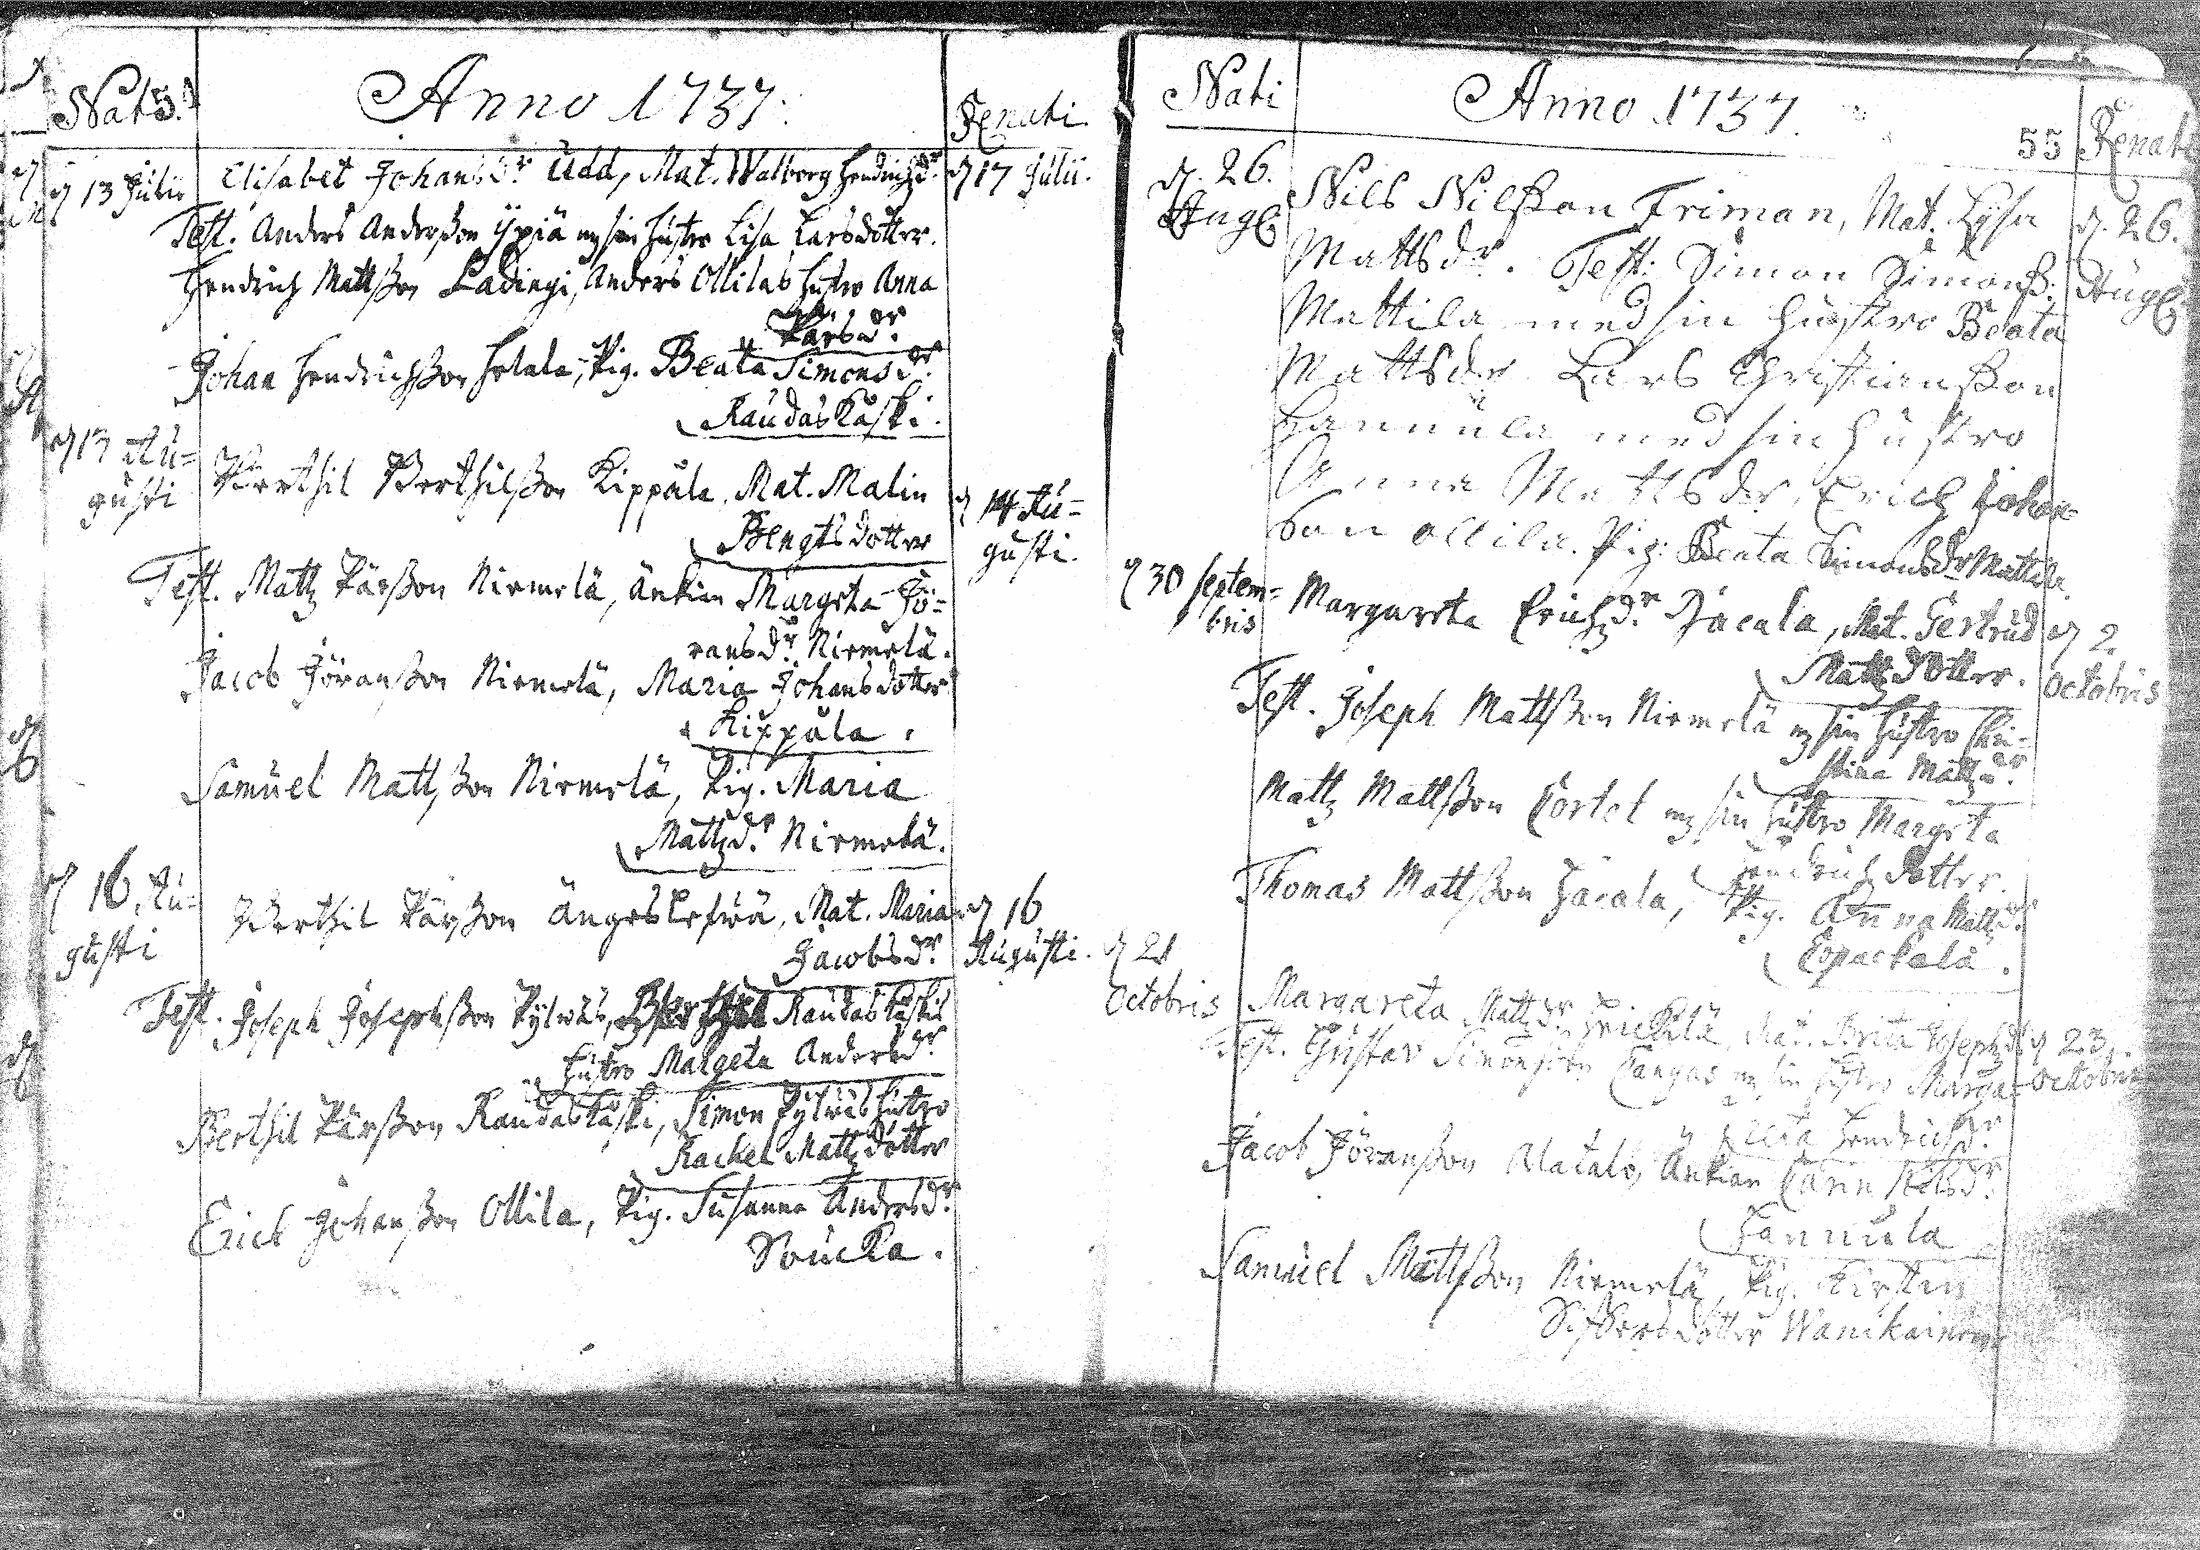 Nati
Anno 1737.
Renati.
d 13 Julii
Elisabet Johansdr. Udd, Mat. Walborg Hendrichzdr.
d 17 Julii.
Test. Anders Anderßon Ypiä mz sin hustro Lisa Larsdotter.
Hendrich Mattßon Ladingi, Anders Ollilas hustro Anna
Pärsdr.
Johan Hendrichßon Pig. Beata Simonsdr.
Raudaskåski.
d 13 Au=
gusti
Berthil Berthilßon Kippåla, Mat. Malin
Bengtsdotter
d 14 Au=
gusti.
Test. Mattz Pärßon Niemelä, Änkian Margeta Jö=
ransdr. Niemelä.
Jacob Jöranßon Niemelä, Maria Johansdotter
Kippåla.
Samuel Mattßon Niemelä, Pig. Maria
Mattzdr. Niemelä.
d 16 Au=
gusti
Berthil Pärßon Ängeslefwä, Mat. Maria
Jacobsdr.
d 16
Augusti.
Test. Joseph Josephßon Pylwäs, Raudaskåskis
hustro Margeta Andersdr.
Berthil Pärßon Raudaskåski, Simon Pylwäs hustro
Rachel Mattzdotter
Erich Johanßon Ollila, Pig. Susanna Andersdr.
Souka.
Nati
Anno 1737.
55
Renati
d. 26.
Augl
Nils Nilßon Friman, Mat. Lysa
d. 26.
Augl
Mattsdr. Test: Simon Simonß.
Mattila med sin hustro Beata
Mattsdr. Lars Christianßon
Hannula med sin hustro
Anna Mattsdr, Erich Johan=
son Ollila. Pig: Beata Simonsdr Mattila.
d 30 septem=
bris
Margareta Erichzdr. Jäcala, Mat. Gertrud
Mattzdotter.
d 2
Octobris
Test. Joseph Mattßon Niemelä mz sin hustro Chri=
stina Mattzdr.
Mattz Mattßon Cortet mz sin hustro Margeta
Hendrichzdotter.
Thomas Mattßon Jäcala, Pig. Anna Mattzdr.
Copackala.
d 21
Octobris
Margareta Mattzdr. Mat. Brita Josephzdr
d 23
Octobris
Test. Gustav Simonßon Cangas mz sin hustro Marga=
reta Hendrichzdr.
Jacob Jöranßon Alatalo, Änkian Carin Nilsdr.
Hannula
Samuel Mattßon Niemelä, Pig. Kirstin
Sifwersdotter Wanikainen